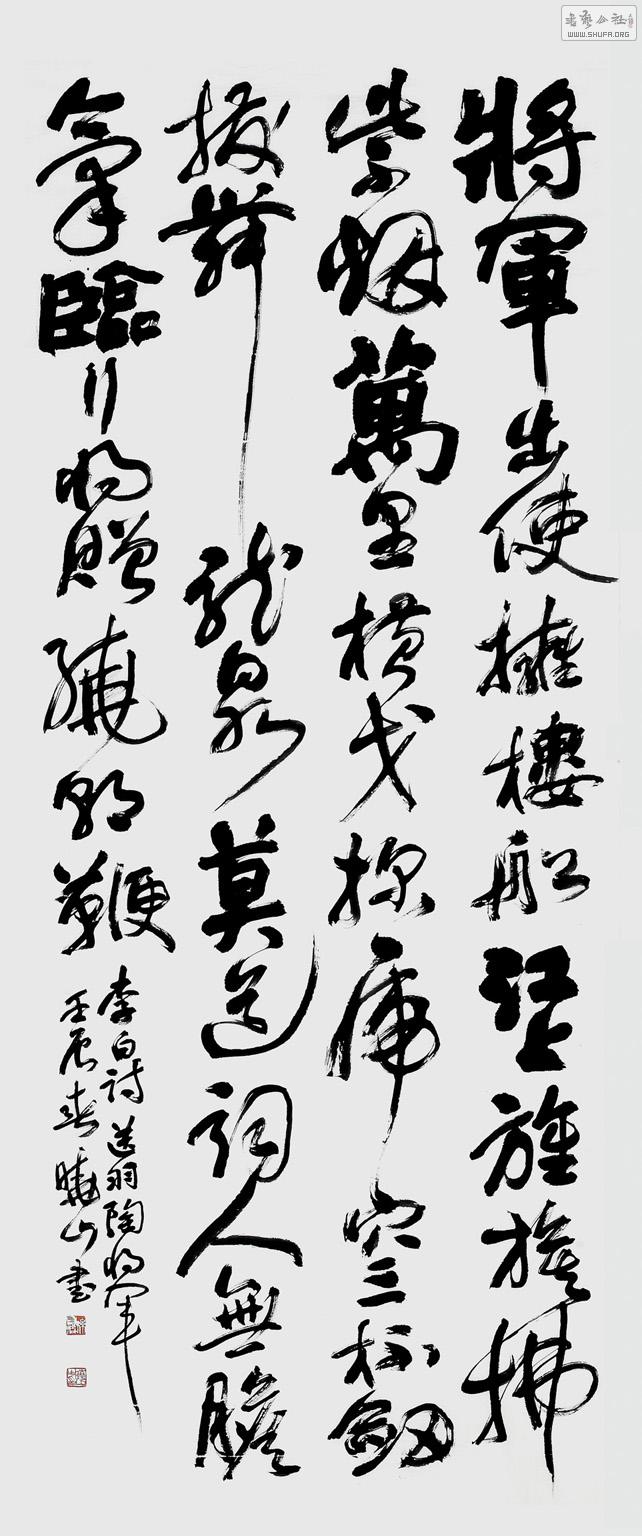 將軍出使擁樓船江上旌旗拂
紫烟萬里橫戈探虎穴三杯劒
拔舞龍泉莫道詞人無膽
氣臨行將贈繞朝鞭
李白詩送羽陶將軍
壬辰春曉山書
書藝公社
WWW.SHUFA.ORG